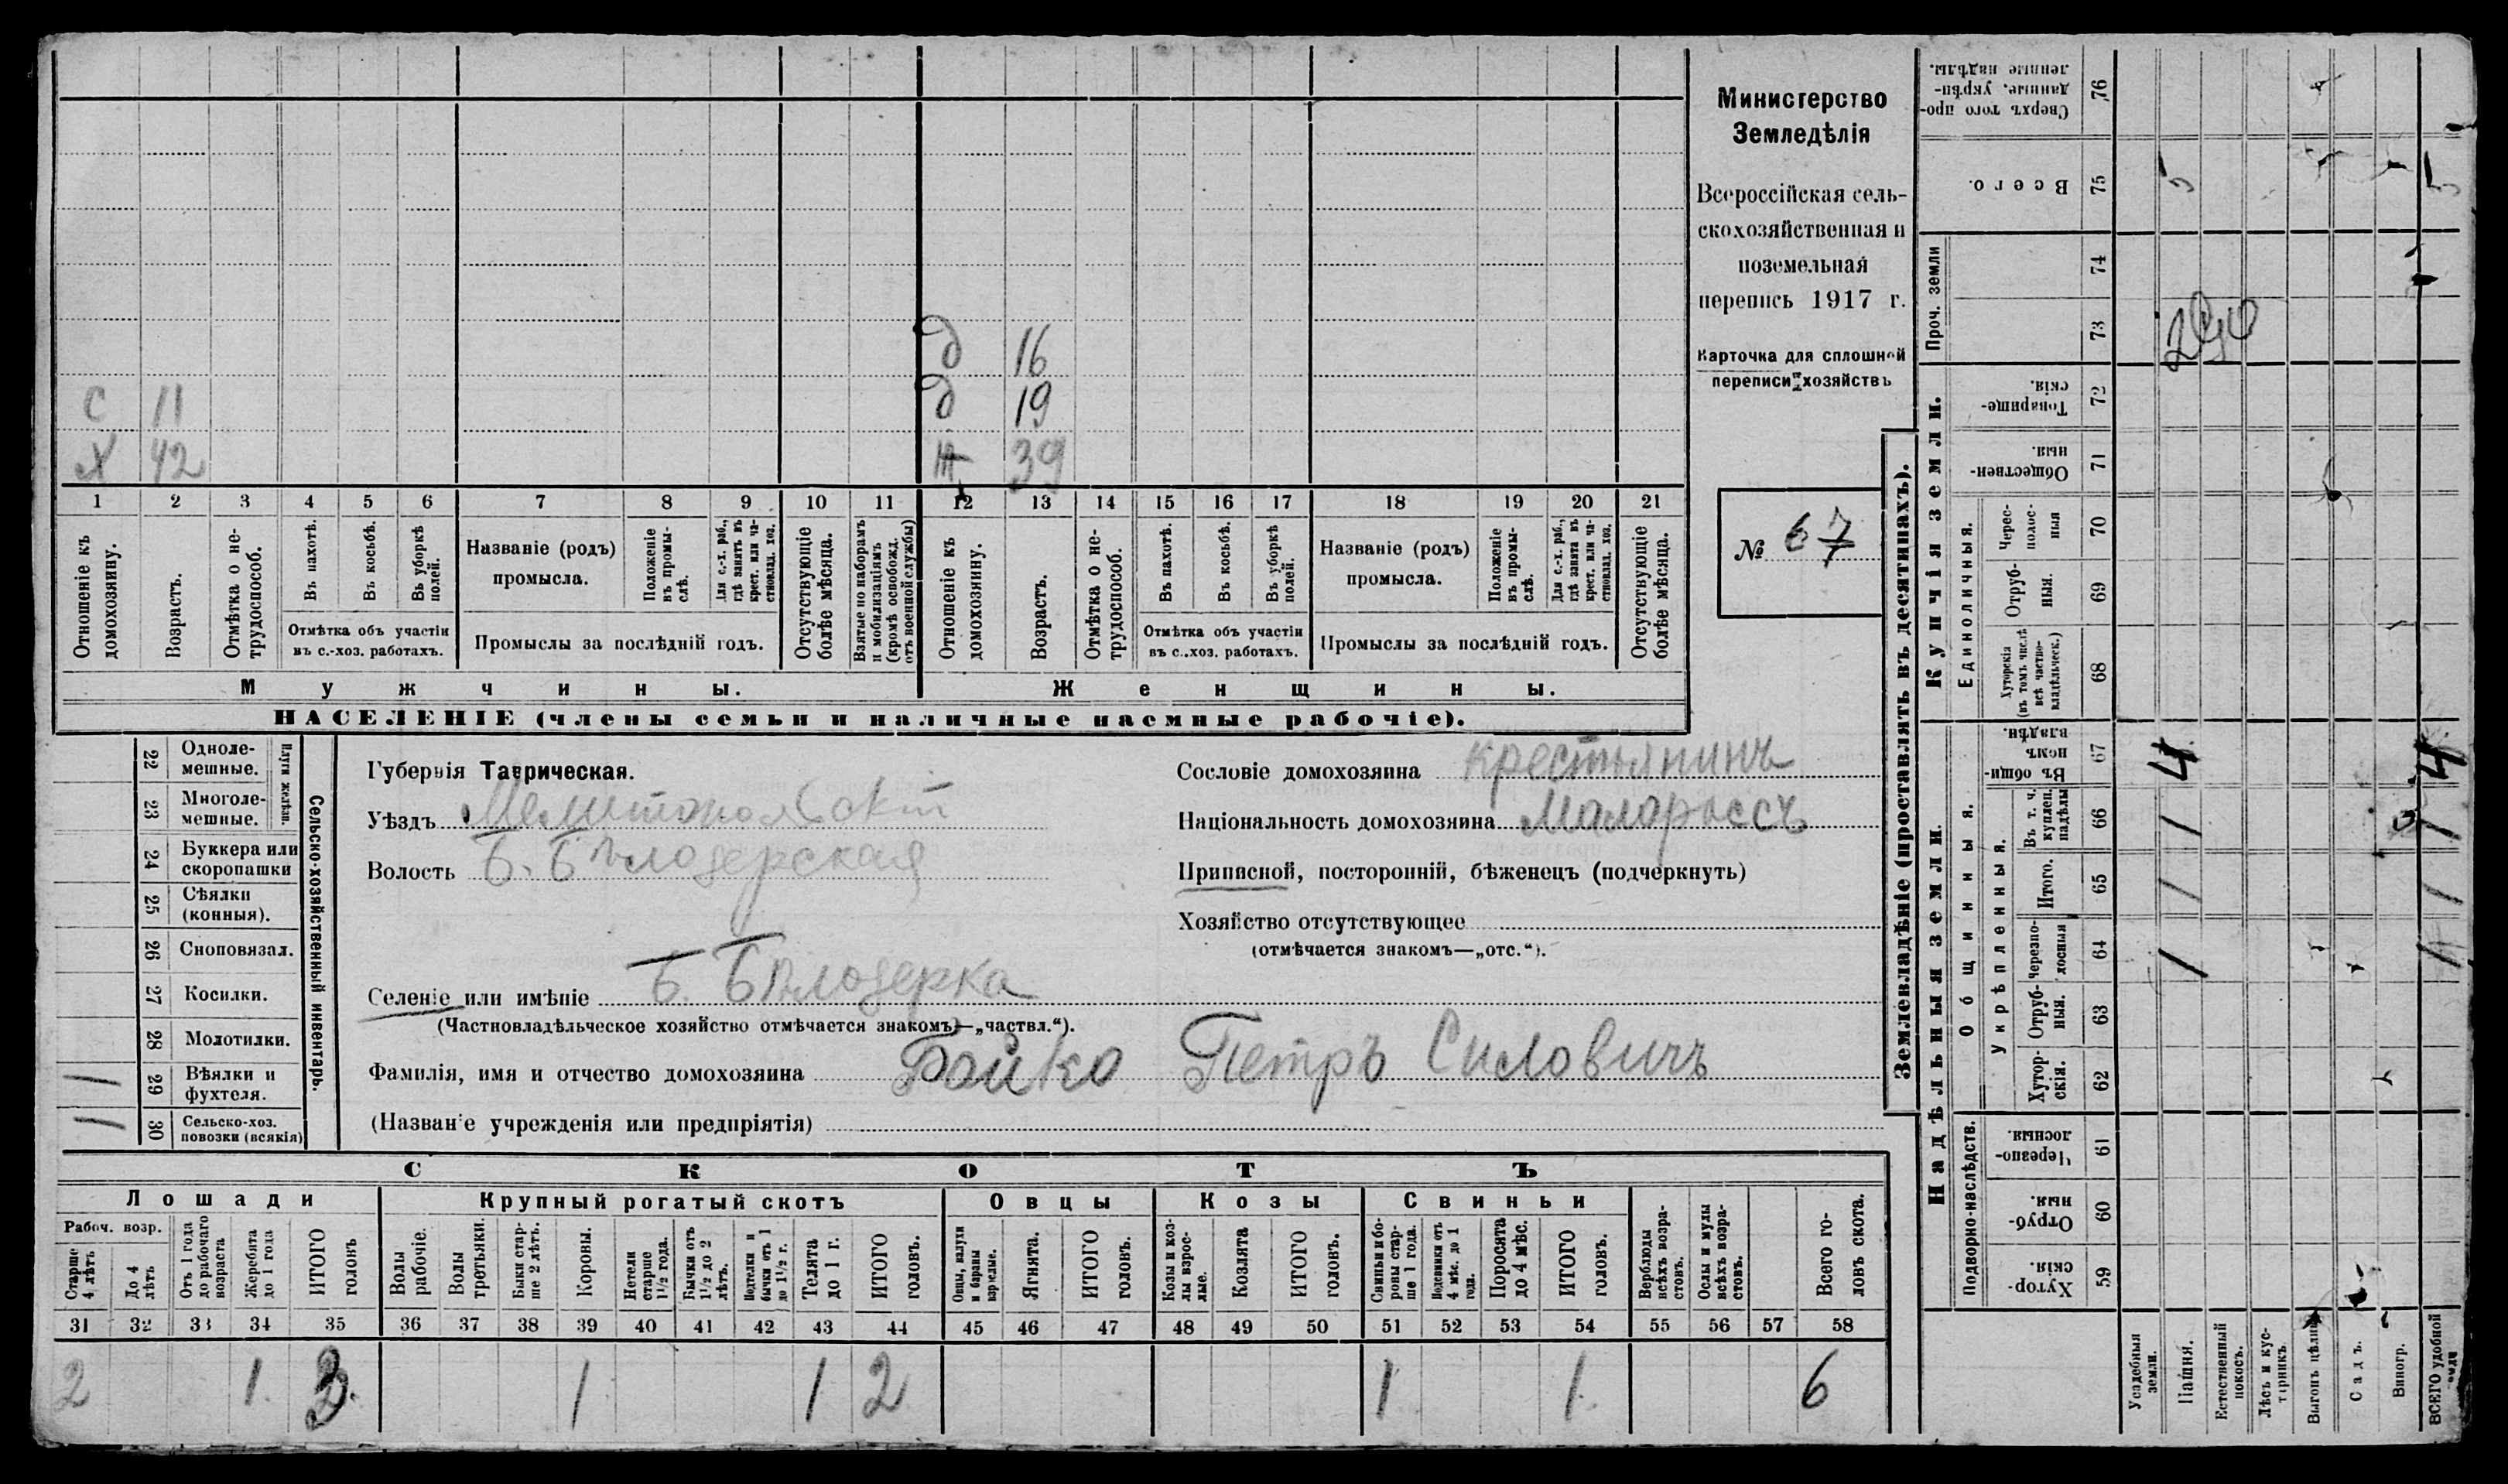 Министерство
Земледѣлія
Всероссійская сель-
скохозяйственная и
поземельная
перепись 1917 г.
Карточка для сплошной
переписи хозяйствъ
№ 67
д 16
с 11 д 19
х 42 ж 39
1 2 3 4 5 6 7 8 9 10 11 12 13 14 15 16 17 18 19 20 21
Отношеніе къ домохозяину.
Возрастъ.
Отмѣтка о не-трудоспособ.
Въ пахотѣ.
Въ косьбѣ.
Въ уборкѣ полей.
Отмѣтка объ участіи
въ с.-хоз. работахъ.
Названіе (родъ)
промысла.
Положеніе въ промы-слѣ.
Для с.-х. раб., гдѣ занятъ въ крест. или ча-стновлад. хоз.
Промыслы за послѣдній годъ.
Отсутствующіе болѣе мѣсяца.
Взятые по наборамъ и мобилизаціямъ (кромѣ освобожд. отъ военной службы)
Отношеніе къ домохозяину.
Возрастъ.
Отмѣтка о не-трудоспособ.
Въ пахотѣ.
Въ косьбѣ.
Въ уборкѣ полей.
Отмѣтка объ участіи
въ с.-хоз. работахъ.
Названіе (родъ)
промысла.
Положеніе въ промы-слѣ.
Для с.-х. раб., гдѣ занята въ крест. или ча-стновлад. хоз.
Промыслы за послѣдній годъ.
Отсутствующіе болѣе мѣсяца.
Мужчины. Женщины.
НАСЕЛЕНІЕ (члены семьи и наличные наемные рабочіе).
Сельско-хозяйственный инвентарь.
Плуги желѣзн.
22 Одноле-мешные.
23 Многоле-мешные.
24 Буккера или скоропашки
25 Сѣялки (конныя).
26 Сноповязал.
27 Косилки.
28 Молотилки.
1 29 Вѣялки и фухтеля.
1 30 Сельско-хоз. повозки (всякія)
Губернія Таврическая.
Уѣздъ Мелитопольскій
Волость Б. Бѣлозерская
Селеніе или имѣніе Б. Бѣлозерка
(Частновладѣльческое хозяйство отмѣчается знакомъ—„частвл.“).
Фамилія, имя и отчество домохозяина Бойко Петръ Силовичъ
(Названіе учрежденія или предпріятія)
Сословіе домохозяина крестьянинъ
Національность домохозяина Малороссъ
Приписной, посторонній, бѣженецъ (подчеркнуть)
Хозяйство отсутствующее
(отмѣчается знакомъ—„отс.“).
СКОТЪ
Лошади Крупный рогатый скотъ Овцы Козы Свиньи
Рабоч. возр.
Старше 4 лѣтъ
До 4 лѣтъ
Отъ 1 года до рабочаго возраста
Жеребята до 1 года
ИТОГО головъ
Волы рабочіе.
Волы третьяки.
Быки стар-ше 2 лѣтъ.
Коровы.
Нетели старше 1½ года.
Бычки отъ 1½ до 2 лѣтъ.
Подтелки и бычки отъ 1 до 1½ г.
Телята до 1 г.
ИТОГО головъ.
Овцы, валухи и бараны взрослые.
Ягнята.
ИТОГО головъ.
Козы и коз-лы взрос-лые.
Козлята
ИТОГО головъ.
Свиньи и бо-ровы стар-ше 1 года.
Подсвинки отъ 4 мѣс. до 1 года.
Поросята до 4 мѣс.
ИТОГО головъ.
Верблюды всѣхъ возра-стовъ.
Ослы и мулы всѣхъ возра-стовъ.
Всего го-ловъ скота.
31 32 33 34 35 36 37 38 39 40 41 42 43 44 45 46 47 48 49 50 51 52 53 54 55 56 57 58
2 1 3 1 1 2 1 1 6
Землевладѣніе (проставлять въ десятинахъ).
Надѣльныя земли. Купчія земли. Проч. земли
Подворно-наслѣдств. Общинныя. Единоличныя.
Укрѣпленныя.
Хутор-скія. 59
Отруб-ныя. 60
Черезпо-лосныя. 61
Хутор-скія. 62
Отруб-ныя. 63
Черезпо-лосныя 64
Итого. 65
Въ т. ч. куплен. надѣлы 66
Въ общи-номъ владѣн. 67
Хуторскія (въ томъ числѣ всѣ частно-владѣльческ.) 68
Отруб-ныя. 69
Черес-полос-ныя 70
Обществен-ныя. 71
Товарище-скія. 72
73
74
Всего. 75
Сверхъ того про-данные, укрѣп-ленные надѣлы. 76
Усадебныя земли.
Пашня. 1 1 1 4 5
Естественный покосъ.
Лѣсъ и кус-тарникъ.
Выгонъ цѣлин.
Садъ.
Виногр.
ВСЕГО удобной 1 1 1 4 5